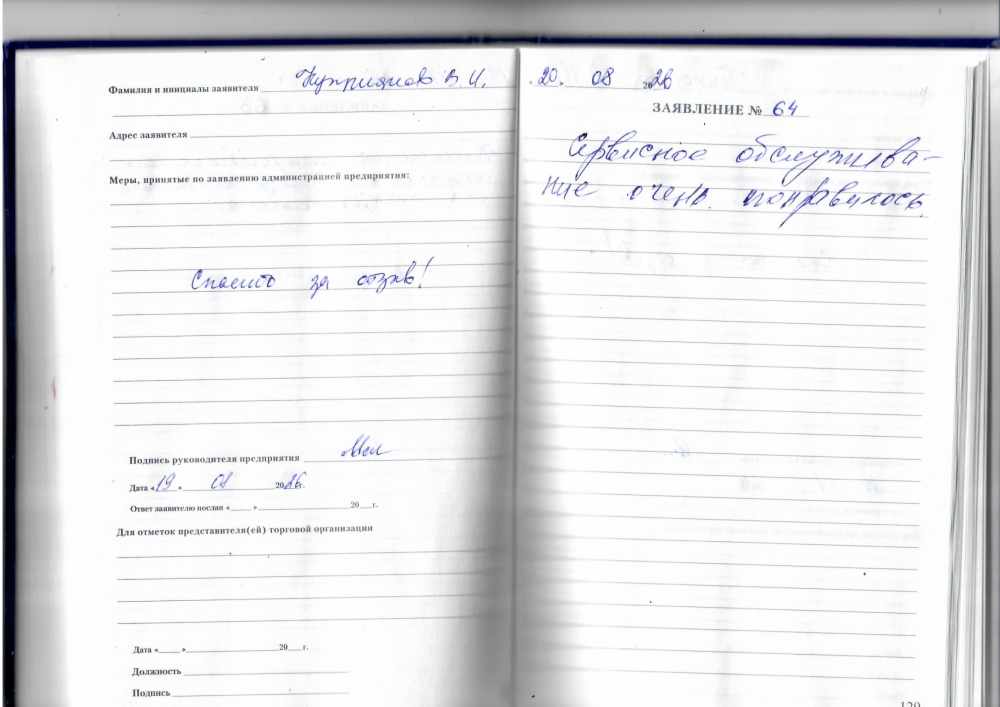 Фамилия и инициалы заявителя Куприянов В. И.
Адрес заявителя
Меры, принятые по заявлению администрацией предприятия:
Спасибо за отзыв!
Подпись руководителя предприятия
Дата «19» 08 2026г.
Ответ заявителю послан « » 20 г.
Для отметок представителя(ей) торговой организации
Дата « » 20 г.
Должность
Подпись
20. 08 2026
ЗАЯВЛЕНИЕ № 64
Сервисное обслужива-
ние очень понравилось.